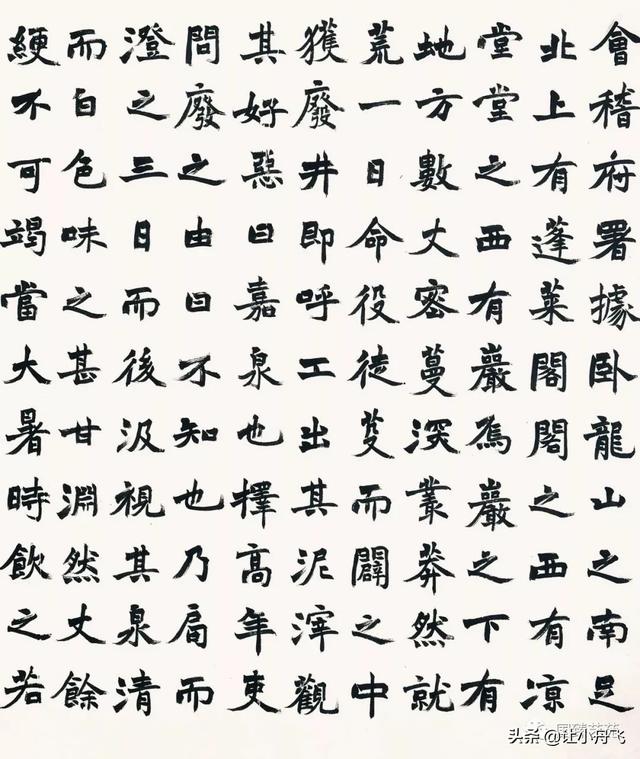 會稽府署據卧龍山之南足
北上有蓬萊閣閣之西有凉
堂堂之西有巖焉巖之下有
地方數丈密蔓深叢莽然就
荒一日命役徒芟而闢之中
獲廢井即呼工出其泥滓觀
其好惡曰嘉泉也擇高年吏
問廢之由曰不知也乃扃而
澄之三日而後汲視其泉清
而白色味之甚甘淵然丈餘
綆不可竭當大暑時飲之若
头条 @让小舟飞